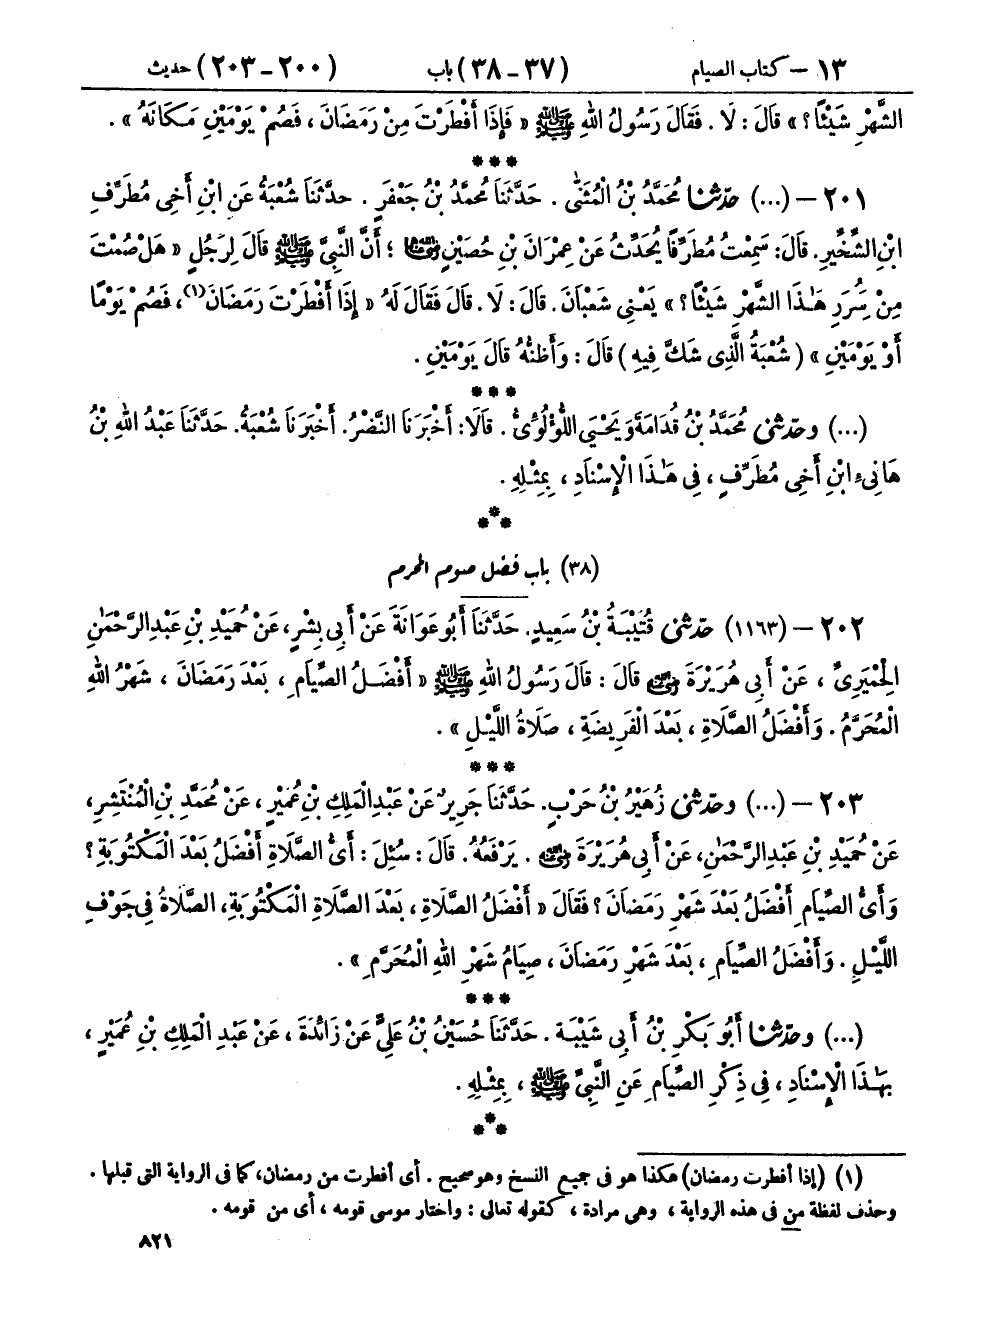 ١٣ – كتاب الصيام (٣٧ – ٣٨) باب (٢٠٠ – ٢٠٣) حديث
الشَّهْرِ شَيْئًا؟ » قَالَ : لَا . فَقَالَ رَسُولُ اللهِ ﷺ « فَإِذَا أَفْطَرْتَ مِنْ رَمَضَانَ ، فَصُمْ يَوْمَيْنِ مَكَانَهُ » .
***
٢٠١ – (...) حَدَّثَنَا مُحَمَّدُ بْنُ الْمُثَنَّى . حَدَّثَنَا مُحَمَّدُ بْنُ جَعْفَرٍ . حَدَّثَنَا شُعْبَةُ عَنِ ابْنِ أَخِى مُطَرِّفِ
ابْنِ الشِّخِّيرِ. قَالَ: سَمِعْتُ مُطَرِّفًا يُحَدِّثُ عَنْ عِمْرَانَ بْنِ حُصَيْنٍ رضي الله عنهما ؛ أَنَّ النَّبِىَّ ﷺ قَالَ لِرَجُلٍ « هَلْ صُمْتَ
مِنْ سُرَرِ هَٰذَا الشَّهْرِ شَيْئًا؟ » يَعْنِى شَعْبَانَ. قَالَ: لَا . قَالَ فَقَالَ لَهُ « إِذَا أَفْطَرْتَ رَمَضَانَ(١)، فَصُمْ يَوْمًا
أَوْ يَوْمَيْنِ » ( شُعْبَةُ الَّذِى شَكَّ فِيهِ ) قَالَ : وَأَظُنُّهُ قَالَ يَوْمَيْنِ .
***
(...) وحَدَّثَنِى مُحَمَّدُ بْنُ قُدَامَةَ وَيَحْيَى اللُّؤْلُؤِىُّ . قَالَا: أَخْبَرَنَا النَّضْرُ. أَخْبَرَنَا شُعْبَةُ. حَدَّثَنَا عَبْدُ اللهِ بْنُ
هَانِىءِ ابْنِ أَخِى مُطَرِّفٍ ، فِى هَٰذَا الْإِسْنَادِ ، بِمِثْلِهِ .
***
(٣٨) باب فضل صوم المحرم
٢٠٢ – (١١٦٣) حَدَّثَنِى قُتَيْبَةُ بْنُ سَعِيدٍ. حَدَّثَنَا أَبُو عَوَانَةَ عَنْ أَبِى بِشْرٍ، عَنْ حُمَيْدِ بْنِ عَبْدِ الرَّحْمَٰنِ
الْحِمْيَرِىِّ ، عَنْ أَبِى هُرَيْرَةَ رضي الله عنه قَالَ : قَالَ رَسُولُ اللهِ ﷺ « أَفْضَلُ الصِّيَامِ ، بَعْدَ رَمَضَانَ ، شَهْرُ اللهِ
الْمُحَرَّمُ . وَأَفْضَلُ الصَّلَاةِ ، بَعْدَ الْفَرِيضَةِ ، صَلَاةُ اللَّيْلِ » .
***
٢٠٣ – (...) وحَدَّثَنِى زُهَيْرُ بْنُ حَرْبٍ. حَدَّثَنَا جَرِيرٌ عَنْ عَبْدِ الْمَلِكِ بْنِ عُمَيْرٍ ، عَنْ مُحَمَّدِ بْنِ الْمُنْتَشِرِ،
عَنْ حُمَيْدِ بْنِ عَبْدِ الرَّحْمَٰنِ، عَنْ أَبِى هُرَيْرَةَ رضي الله عنه . يَرْفَعُهُ. قَالَ : سُئِلَ : أَىُّ الصَّلَاةِ أَفْضَلُ بَعْدَ الْمَكْتُوبَةِ ؟
وَأَىُّ الصِّيَامِ أَفْضَلُ بَعْدَ شَهْرِ رَمَضَانَ ؟ فَقَالَ « أَفْضَلُ الصَّلَاةِ ، بَعْدَ الصَّلَاةِ الْمَكْتُوبَةِ، الصَّلَاةُ فِى جَوْفِ
اللَّيْلِ . وَأَفْضَلُ الصِّيَامِ ، بَعْدَ شَهْرِ رَمَضَانَ ، صِيَامُ شَهْرِ اللهِ الْمُحَرَّمِ » .
***
(...) وحَدَّثَنَا أَبُو بَكْرِ بْنُ أَبِى شَيْبَةَ . حَدَّثَنَا حُسَيْنُ بْنُ عَلِىٍّ عَنْ زَائِدَةَ ، عَنْ عَبْدِ الْمَلِكِ بْنِ عُمَيْرٍ ،
بِهَٰذَا الْإِسْنَادِ ، فِى ذِكْرِ الصِّيَامِ عَنِ النَّبِىِّ ﷺ ، بِمِثْلِهِ .
***
(١) (إذا أفطرت رمضان) هكذا هو فى جميع النسخ وهو صحيح . أى أفطرت من رمضان، كما فى الرواية التى قبلها .
وحذف لفظة من فى هذه الرواية ، وهى مرادة ، كقوله تعالى : واختار موسى قومه ، أى من قومه .
٨٢١